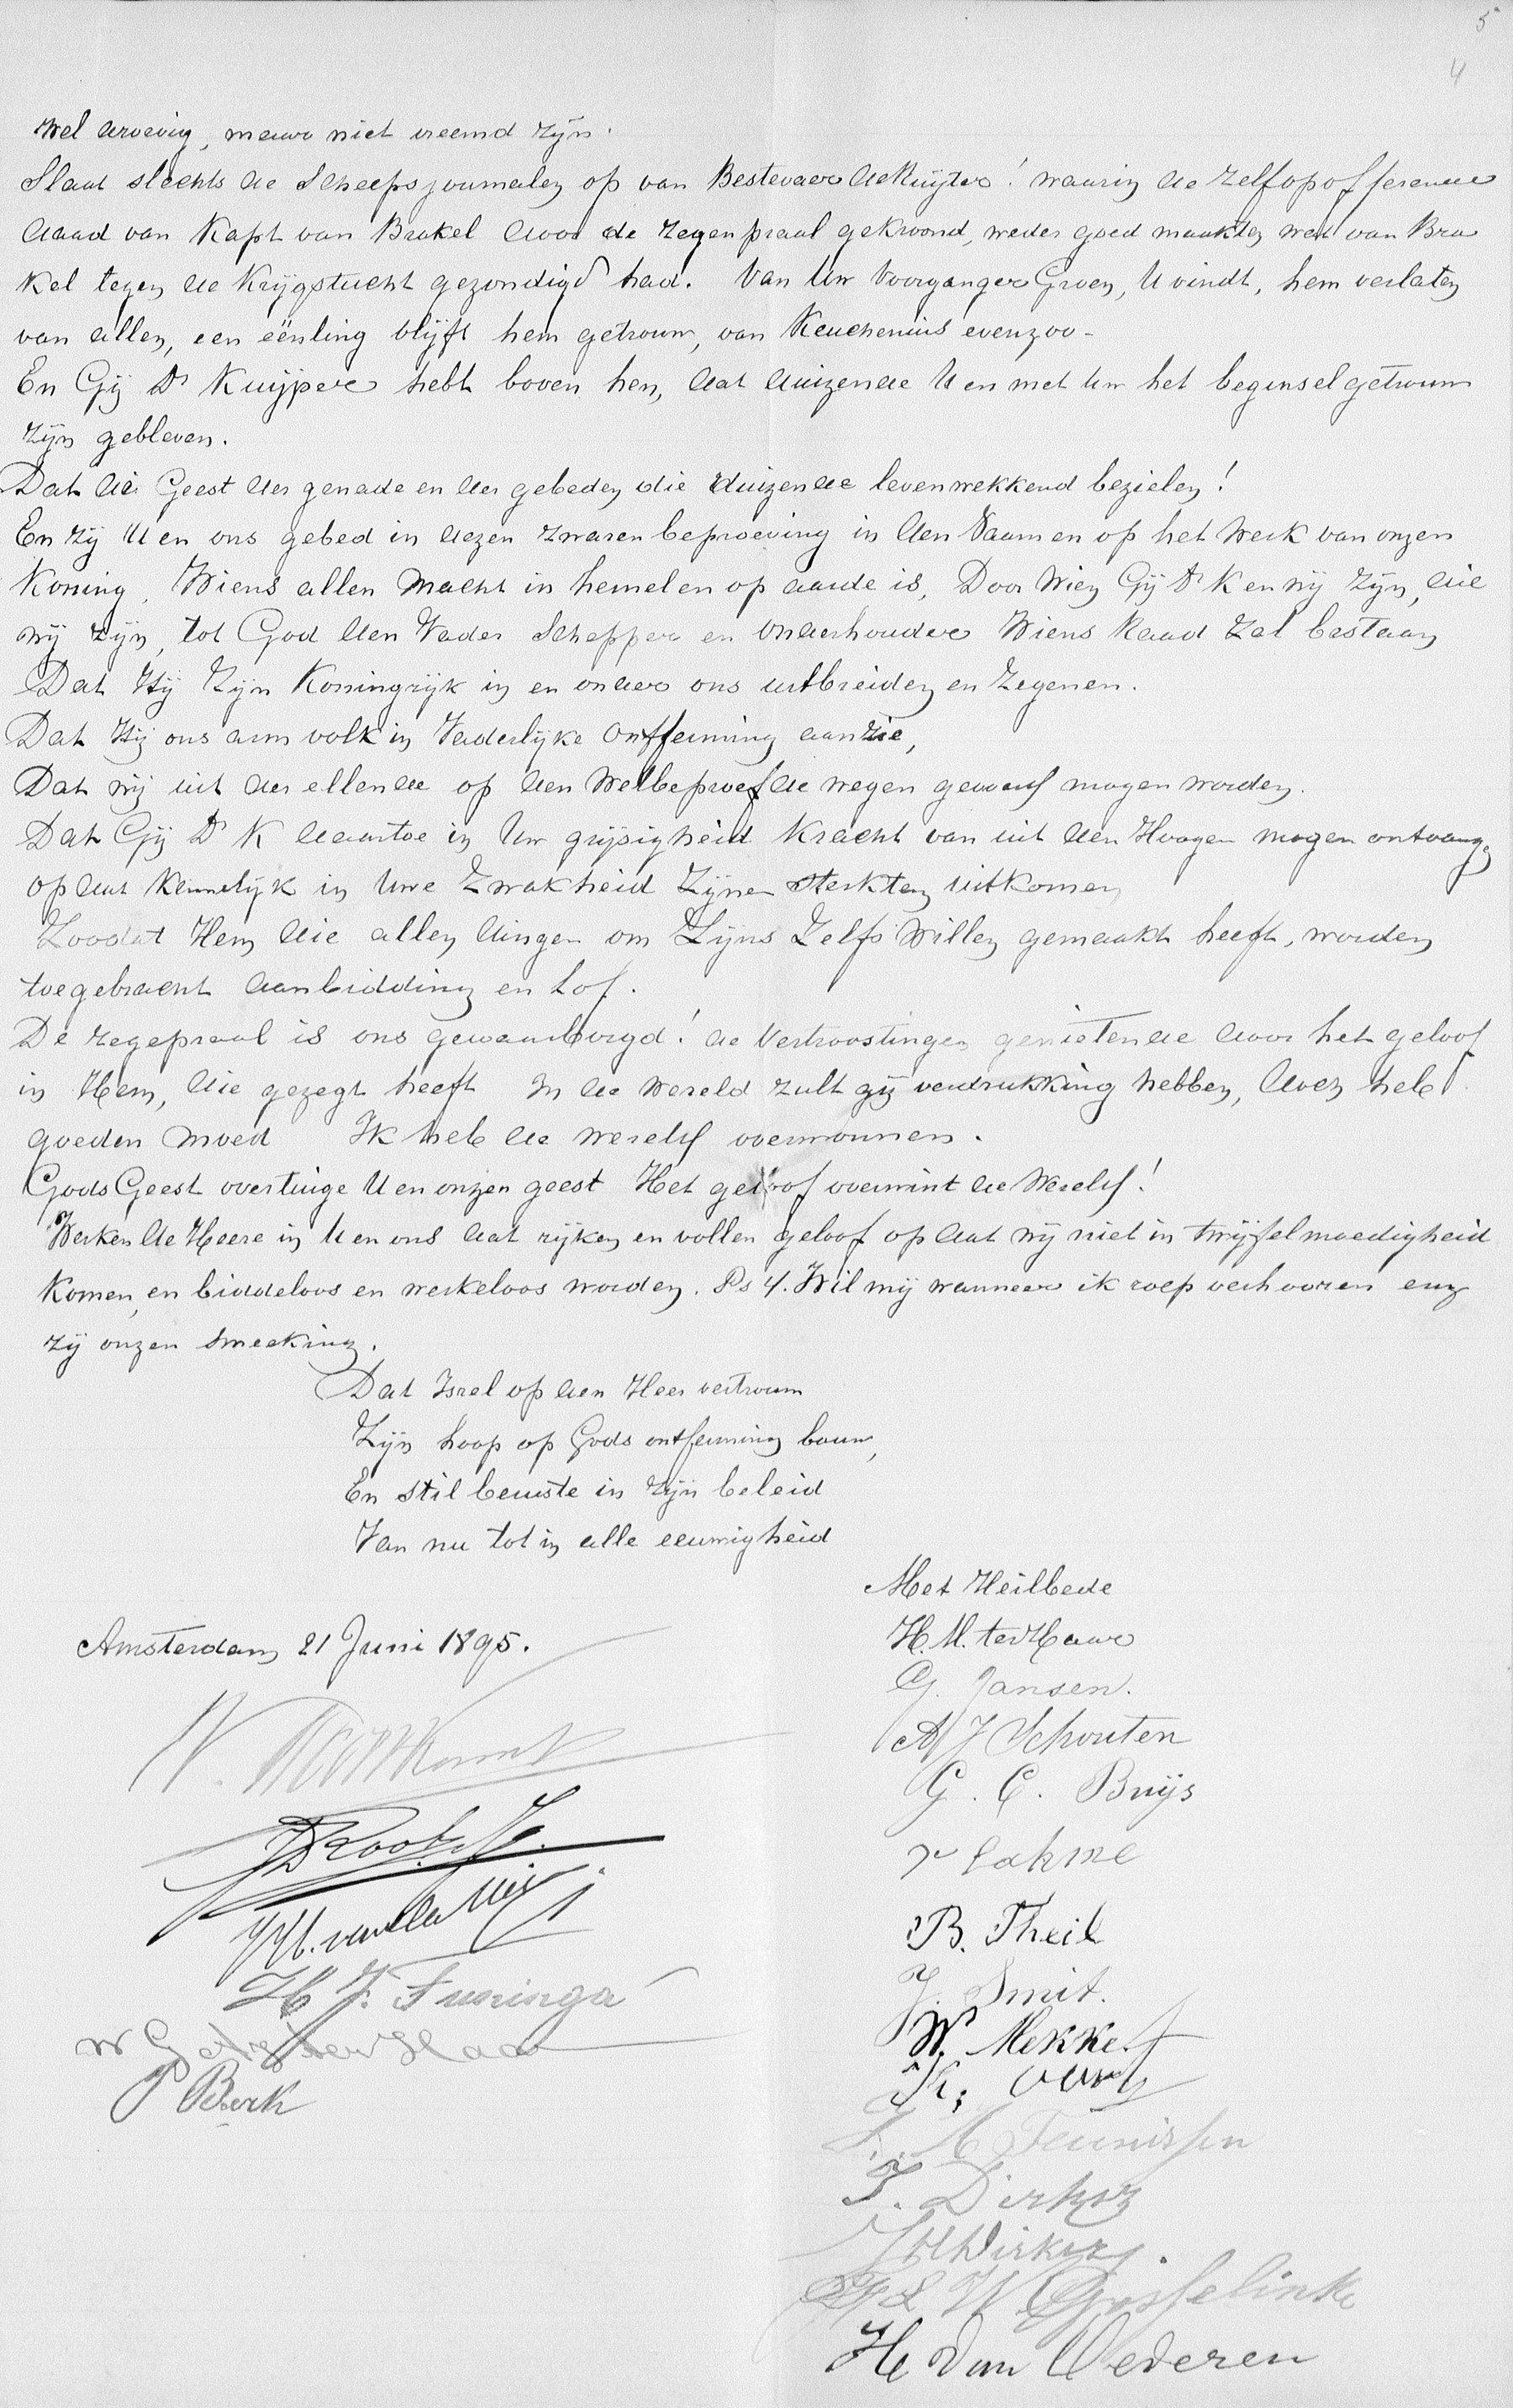 5
4
wel droevig, maar niet vreemd zijn.
Slaat slechts de Scheepsjournalen op van Bestevaer de Ruijter! waarin de zelfopofferende
daad van Kapt van Brakel door de zegenpraal gekroond, weder goed maakten wat van Bra
kel tegen de Krijgstucht gezondigd had. Van Uw Voorganger Groen, U vindt, hem verlaten
van allen, een eënling blijft hem getrouw, van Keuchenius evenzoo-
En Gij Dr Kuijper hebt boven hen, dat duizende U en met Uw het beginsel getrouw
zijn gebleven.
Dat die Geest der genade en der gebeden die duizende levenwekkend bezielen!
En zij U en ons gebed in dezen zwaren beproeving in den Naam en op het Werk van onzen
Koning, Wiens allen Macht in hemel en op aarde is, Door Wien Gij Dr K en wij zijn, die
wij zijn, tot God den Vader Schepper en Onderhouder Wiens Raad Zal bestaan
Dat Hij Zijn Koningrijk in en onder ons uitbreiden en Zegenen.
Dat Hij ons arm volk in Vaderlijke Ontferming aanzie,
Dat wij uit der ellende op den Welbeproefde wegen gevoerd mogen worden.
Dat Gij Dr K daartoe in Uw grijsigheid Kracht van uit den Hoogen mogen ontvangen
opdat Kennelijk in Uwe Zwakheid Zijne sterkten uitkomen
Zoodat Hem die allen dingen om Zijns Zelfs Willen gemaakt heeft, worden
toegebracht Aanbidding en Lof.
De zegepraal is ons gewaarborgd! de Vertroostingen genietende door het geloof
in Hem, die gezegt heeft In de Wereld zult gij verdrukking hebben, doch heb
goeden Moed Ik heb de Wereld overwonnen.
Gods Geest overtuige U en onzen geest Het geloof overwint de Wereld!
Werken de Heere in U en ons dat rijken en vollen geloof opdat wij niet in twijfelmoedigheid
Komen, en biddeloos en werkeloos worden. Ps 4. Wil mij wanneer ik roep verhooren enz
zij onzen smeeking.
Dat Isrel op den Heer vertrouw
Zijn hoop op Gods ontferming bouw,
En stil beruste in zijn beleid
Van nu tot in alle eeuwigheid
Met Heilbede
Amsterdam 21 Juni 1895.
H. M. ter Haar
G. Jansen.
A J Schouten
G. C. Buijs
B. Theil
J. Smit.
W. Mekkes
H J. Fusinga
P Berk
Teunissen
J. Dirksz
Dirksz.
W Gosselink
H van Oederen